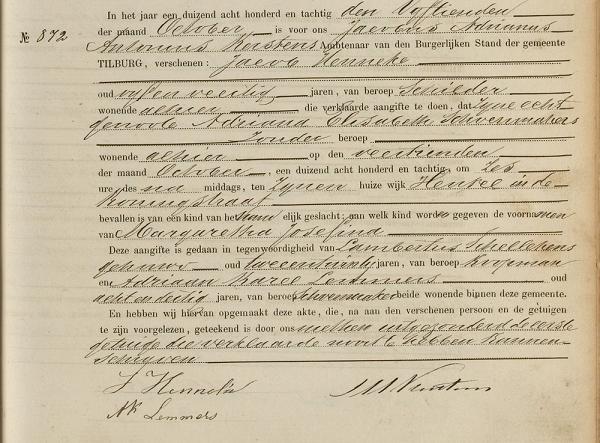 In het jaar een duizend acht honderd en tachtig den Vyftienden
der maand October is voor ons Jacobus Adrianus
№ 872
Antonius Kerstens Ambtenaar van den Burgerlijken Stand der gemeente
TILBURG, verschenen: Jacob Henneke
oud vyf en veertig jaren, van beroep Schilder
wonende alhier die verklaarde aangifte te doen, dat Zyne echt
genoote Adriana Elisabeth Schoenmakers
Zonder beroep
wonende alhier op den veertienden
der maand October, een duizend acht honderd en tachtig, om Zes
ure des na middags, ten Zynen huize wijk Heuvel in de
Koningstraat
bevallen is van een kind van het elijk geslacht; aan welk kind worde gegeven de voornamen
van Margaretha Josefina
Deze aangifte is gedaan in tegenwoordigheid van Lambertus Schellekens
oud jaren, van beroep Koopman
en Adriaan Karel Lemmers oud
acht en dertig jaren, van beroep Schoenmaker beide wonende binnen deze gemeente.
En hebben wij hiervan opgemaakt deze akte, die, na aan den verschenen persoon en de getuigen
te zijn voorgelezen, geteekend is door ons met hen uitgezonderd de eerste
getuige die verklaarde niet te hebben kunnen
Schryven
J Henneke
AK Lemmers